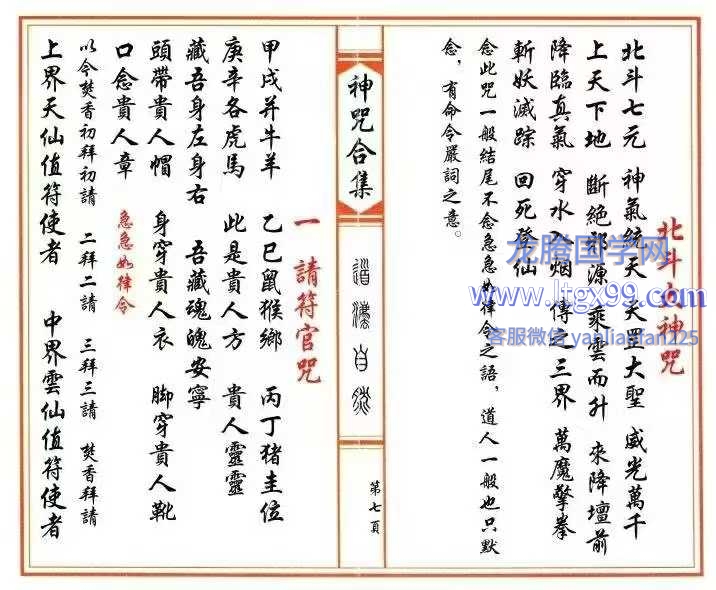 北斗大神咒
北斗七元 神氣統天 天罡大聖 威光萬千
上天下地 斷絕邪源 乘雲而升 來降壇前
降臨真氣 穿水入烟 傳之三界 萬魔擎拳
斬妖滅踪 回死登仙
念此咒一般結尾不念急急如律令之語，道人一般也只默
念，有命令嚴詞之意。
神咒合集
道法自然
第七頁
一 請符官咒
甲戌并牛羊 乙巳鼠猴鄉 丙丁猪圭位
庚辛各虎馬 此是貴人方 貴人靈靈
藏吾身左身右 吾藏魂魄安寧
頭帶貴人帽 身穿貴人衣 脚穿貴人靴
口念貴人章 急急如律令
以今焚香初拜初請 二拜二請 三拜三請 焚香拜請
上界天仙值符使者 中界雲仙值符使者
龙腾国学网
www.ltgx99.com
客服微信 yanliantan225